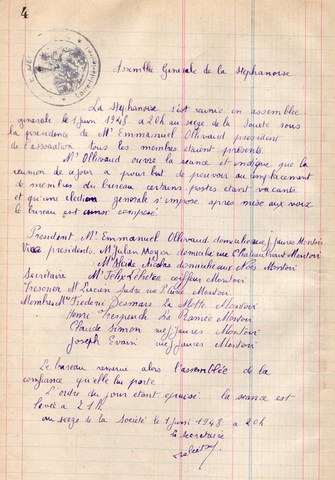 4
Assemblée Generale de la Stephanoise
La Stephanoise s'est reunie en assemblée
generale le 1 juin 1948 a 20h au siege de la Société sous
la presidence de Mr Emmanuel Ollivaud president
de l'association tous les membres etaient presents.
Mr Ollivaud ouvre la seance et indique que la
reunion de ce jour a pour but de pouvoir au remplacement
de membres du bureau certains postes etant vacants
et qu'une election generale s'impose apres mise aux voix
le bureau est ainsi composé
President Mr Emmanuel Ollivaud domicilié rue J Jaures Montoir
Vice presidents Mr Julien Moyon domicilié rue Chateaubriand Montoir
Mr Nicolas domicilié Montoir
Secretaire Mr Felix coiffeur Montoir
Tresorier M Lucien Montoir
Membres Mrs Frederic Desmars La Motte Montoir
Henri Montoir
Claude Simon rue J Jaures Montoir
Joseph Evain rue J Jaures Montoir
Le bureau remercie alors l'assemblée de la
confiance qu'elle lui porte
L'ordre du jour etant epuisé la seance est
levée a 21h
au siege de la Société le 1 juin 1948 a 20h
Le secretaire